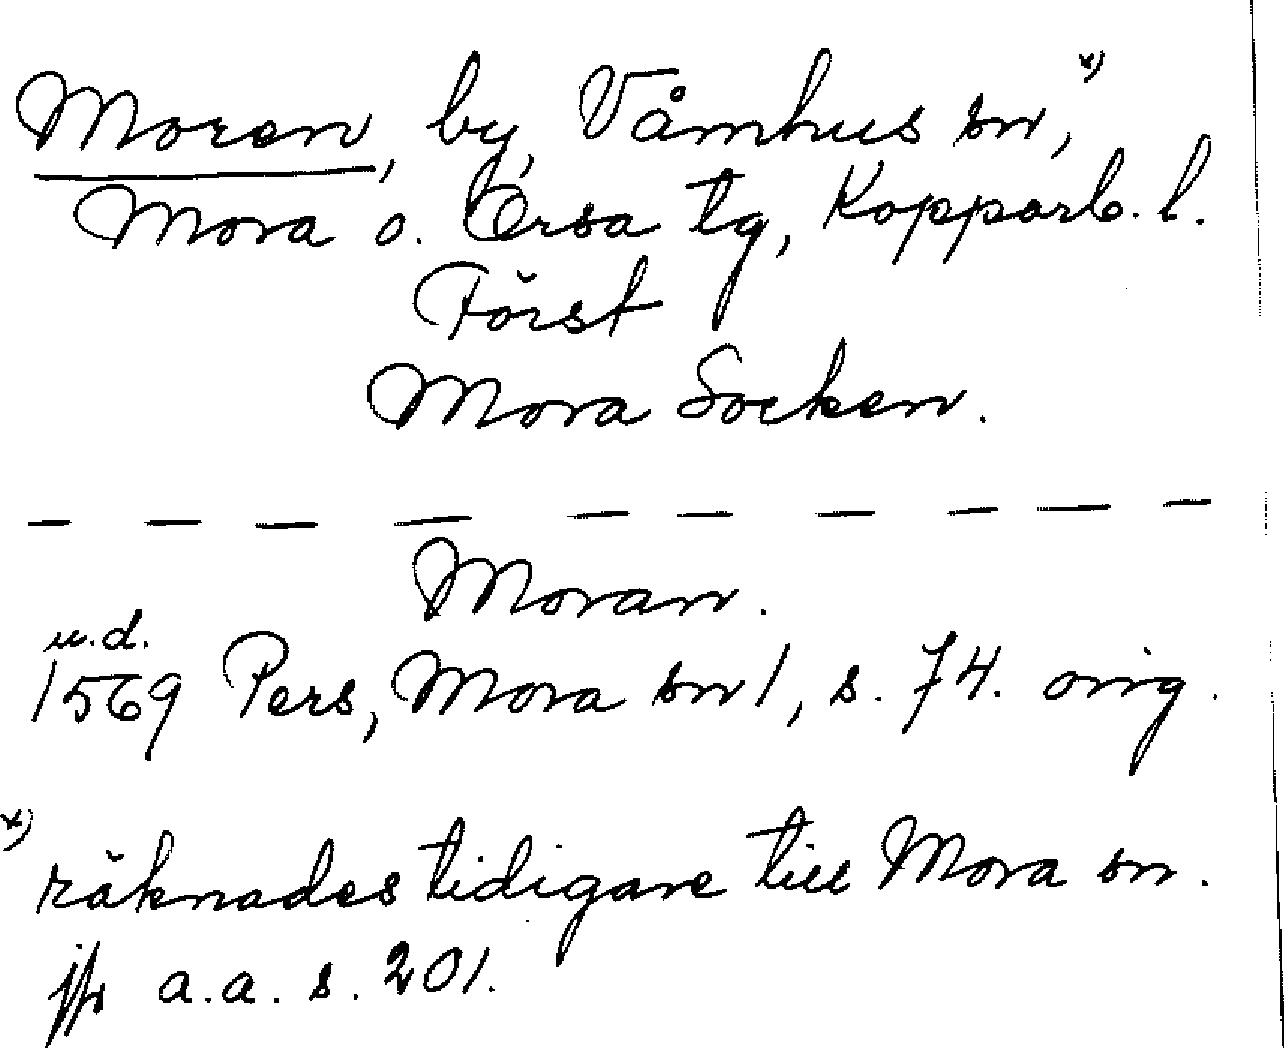 Moren, by, Våmhus sn, x)
Mora o. Orsa tg, Kopparb. l.
Först
Mora Socken.
— — — — — — — — — —
Moran.
u.d.
1569 Pers, Mora sn 1, s. 74. orig.
x)
räknades tidigare till Mora sn.
jfr a.a. s. 201.